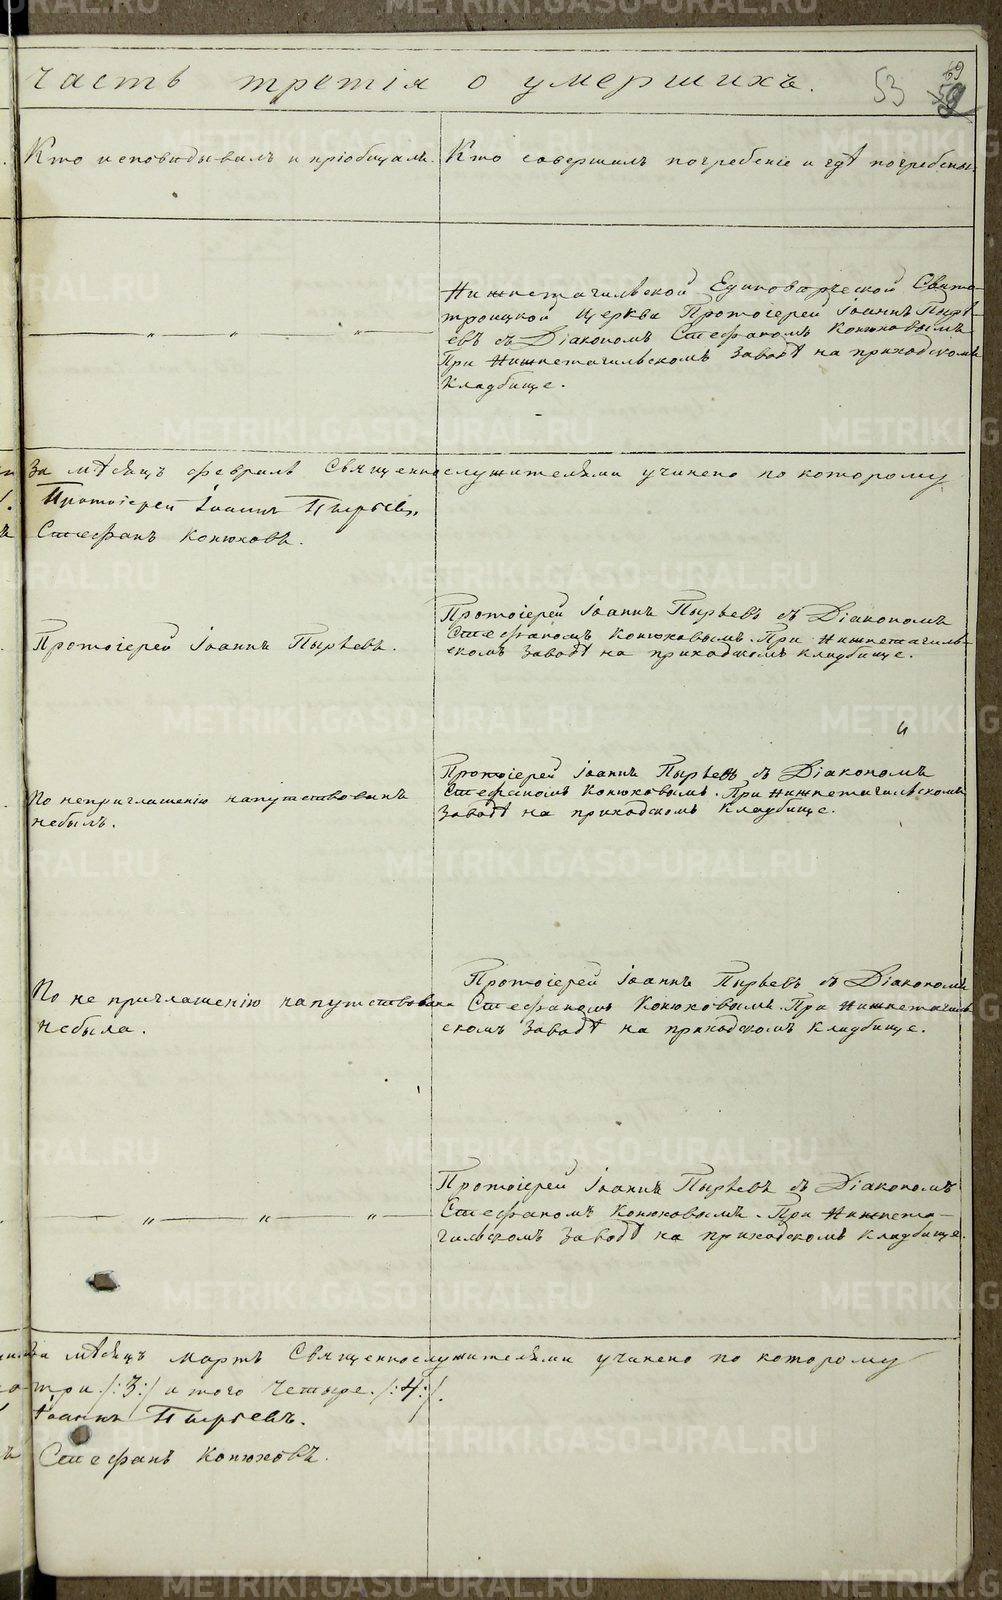 METRIKI.GASO-URAL.RU
Часть третія о умершихъ.
53
69
59
Кто исповѣдывалъ и пріобщалъ.
Кто совершилъ погребеніе и гдѣ погребены.
Нижнетагильской Единовѣрческой Свято-
троицкой Церкви Протоіерей Іоаннъ Пырь-
евъ съ Діакономъ Стефаномъ Конюховымъ
При Нижнетагильскомъ Заводѣ на приходскомъ
Кладбище.
За мѣсяцъ февраль Священнослужителями учинено по которому
Протоіерей Іоаннъ Пырьевъ.
Стефанъ Конюховъ.
Протоіерей Іоаннъ Пырьевъ.
Протоіерей Іоаннъ Пырьевъ съ Діакономъ
Стефаномъ Конюховымъ. При Нижнетагиль-
скомъ Заводѣ на приходскомъ кладбище.
По неприглашенію напутствованъ
небылъ.
Протоіерей Іоаннъ Пырьевъ съ Діакономъ
Стефаномъ Конюховымъ. При Нижнетагильскомъ
Заводѣ на приходскомъ Кладбище.
По не приглашенію напутствована
небыла.
Протоіерей Іоаннъ Пырьевъ съ Діакономъ
Стефаномъ Конюховымъ. При Нижнетагиль
скомъ Заводѣ на приходскомъ Кладбище.
Протоіерей Іоаннъ Пырьевъ съ Діакономъ
Стефаномъ Конюховымъ. При Нижнета-
гильскомъ Заводѣ на приходскомъ Кладбище.
За мѣсяцъ Мартъ Священнослужителями учинено по которому
три /:3:/ итого Четыре. /:4:/.
Іоаннъ Пырьевъ.
Стефанъ Конюховъ.